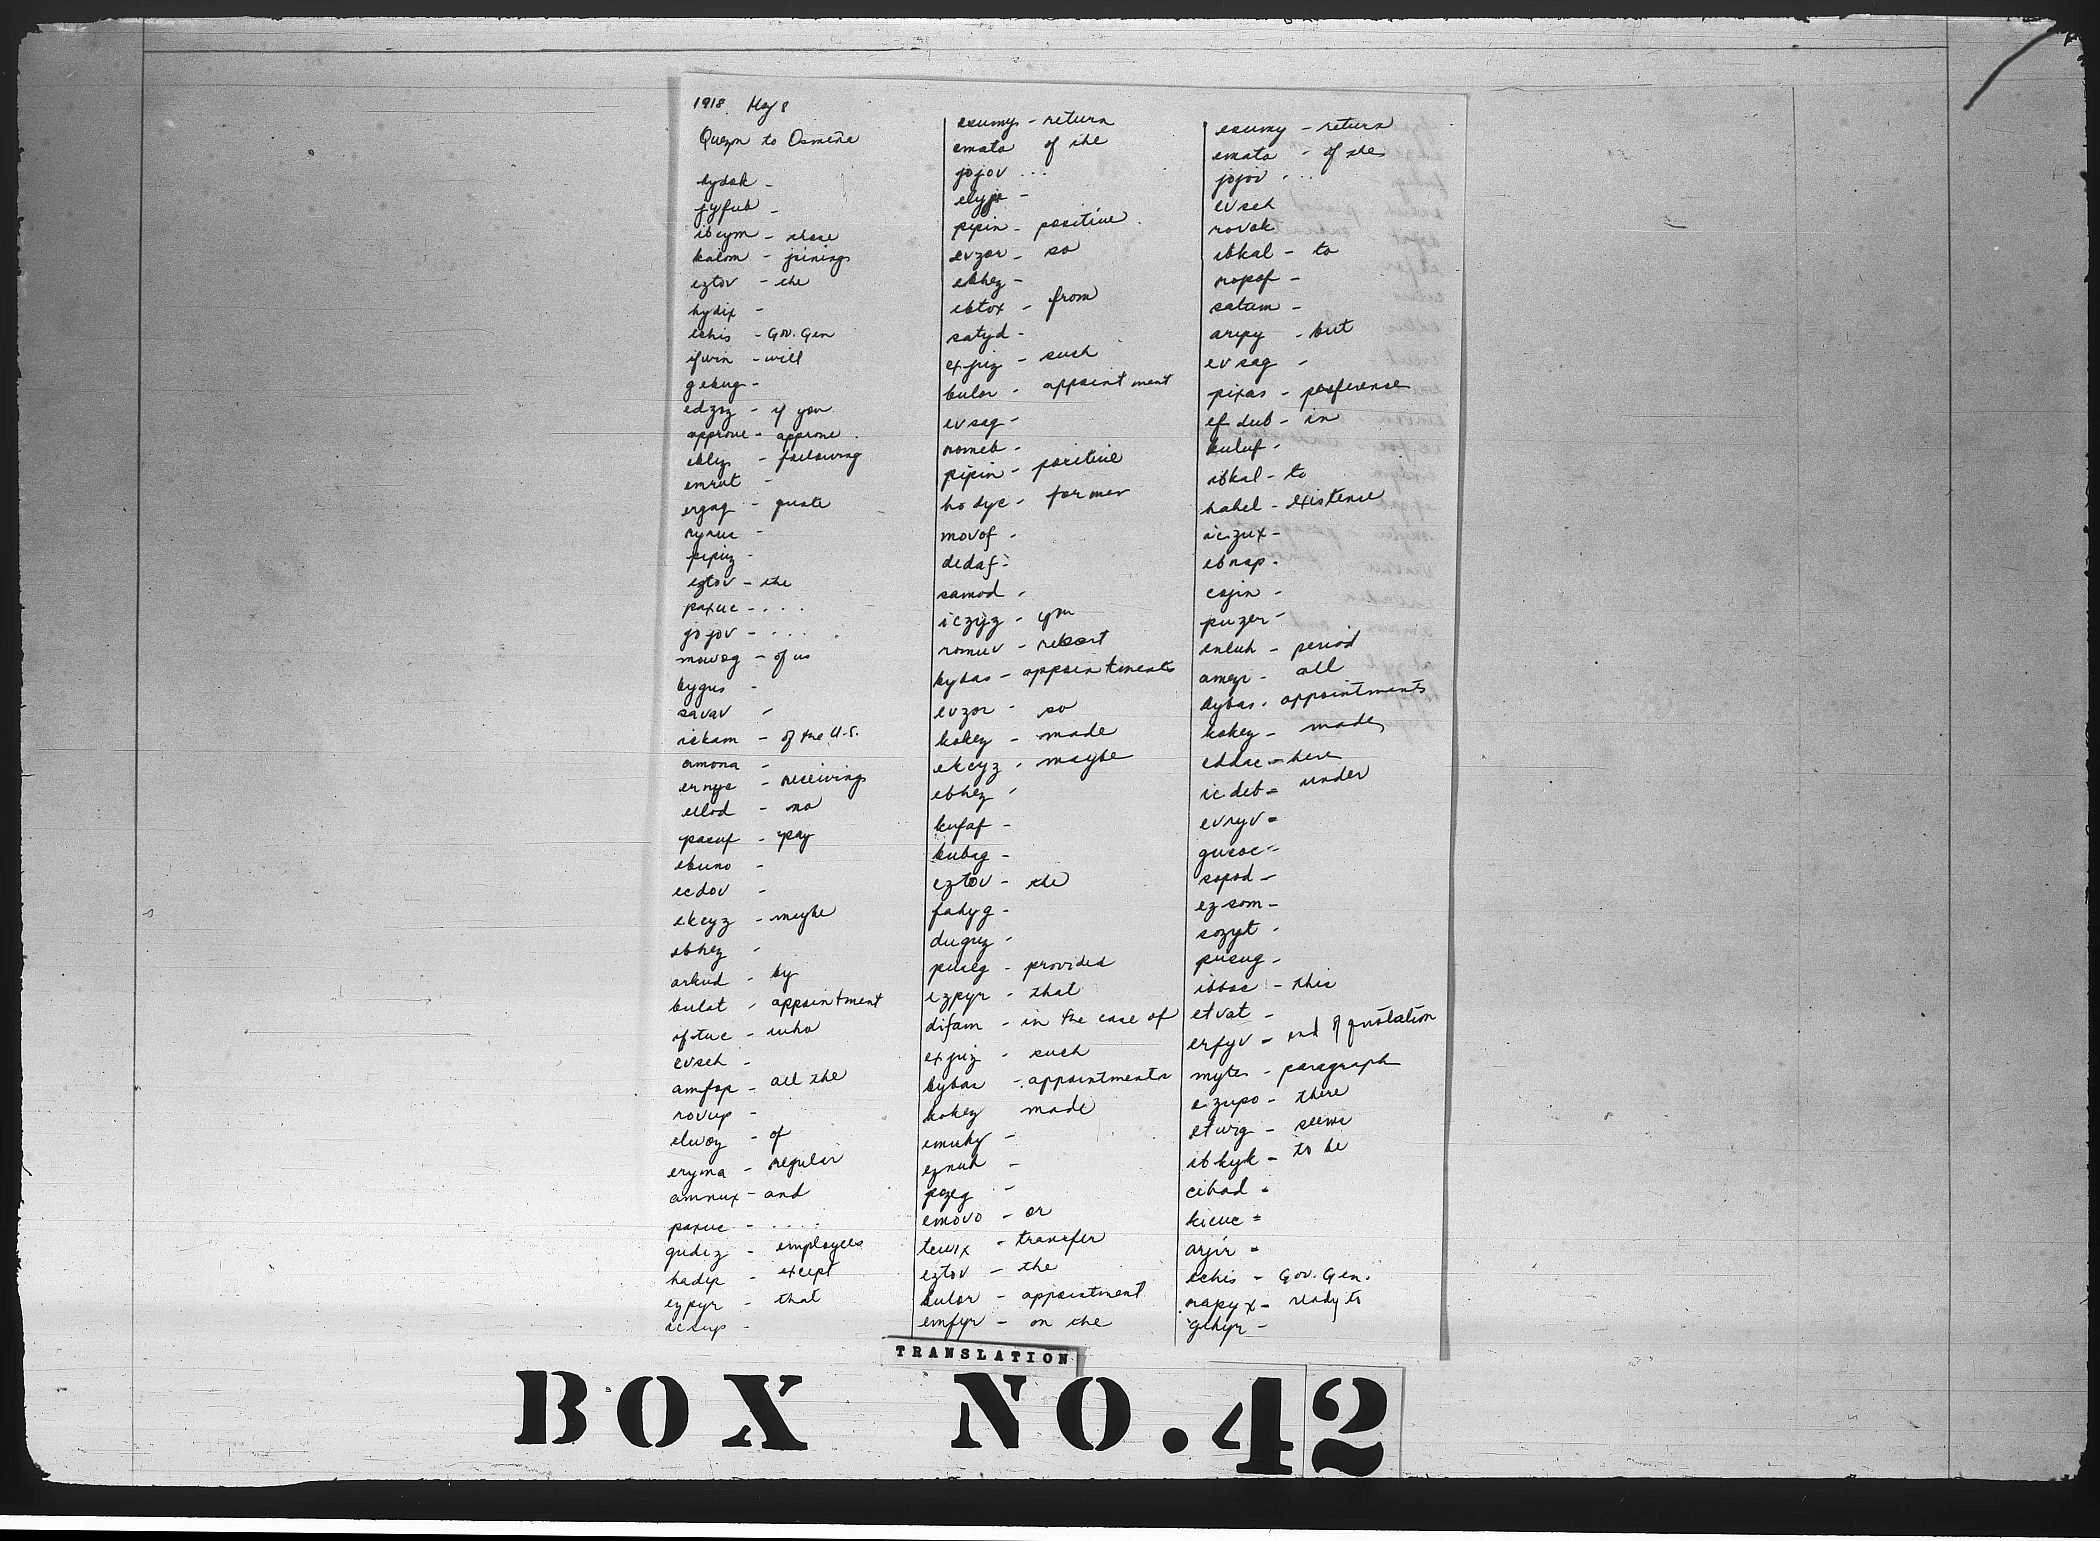 1918 May 8
Quezon to Osmeña
eydak -
jyfub -
ibcym - those
kalom - joining
eztov - the
hydix -
echis - Gov. Gen
ifwin - will
gekug -
edzyz - if you
approve - approve
ekly - following
emrut -
ergag - quote
rynuc -
pipiz
eztov - the
paxuc - . . .
jojov - . . . .
mowog - of us
bygus -
savav -
iskam - of the U.S.
amona -
ernyc - receiving
eilod - no
pacuf - pay
ebuno -
ecdov -
ekcyz - maybe
ebhez -
arkud - by
bulot - appointment
iftuc - who
evseh -
amfop - all the
rovup -
elwoy - of
eryma - regular
amnux - and
paxuc - . . . . .
gudiz - employees
hadip - except
ezpyr - that
acsup -
esumy - return
emato of the
jojov ...
elyjo -
pipin - positive
evzor - so
ebhez -
ebtox - from
satyd -
exjiz - such
bulor - appointment
evsag -
nomeb -
pipin - positive
hodyc - former
movof -
dedaf -
samod -
iczyz - you
romuv - report
bybas - appointments
evzor - so
kokey - made
ekcyz - maybe
ebhez -
kufaf -
kubig -
eztov - the
fadyg -
dugiz -
puceg - provided
ezpyr - that
difam - in the case of
exjiz - such
bybas - appointments
kokey made
emuhy -
eznuh -
pozeg -
emovo - or
tewix - transfer
eztov - the
bulor - appointment
emfyr - on the
esumy - return
emato - of the
jojov - ...
evseh
rovok
ibkal - to
nopof -
satum -
aripy - but
evsag -
pixas - preference
efdub - in
kuluf -
ibkal - to
hahel - existence
iczux -
ebnap -
cojin -
puzer -
enluh - period
ameyr - all
bybas - appointments
kokey - made
eddac - here
icdeb - under
evryv -
gusoc -
sopod -
ezsom -
sozyt -
pusug -
ibboc - this
etvat -
erfyv - end of quotation
myter - paragraph
ezupo - there
etwig - seems
ibkyk - to be
cibad -
kicuc -
arjir -
echis - Gov. Gen.
napyx - ready to
gehyr -
TRANSLATION
BOX NO. 42